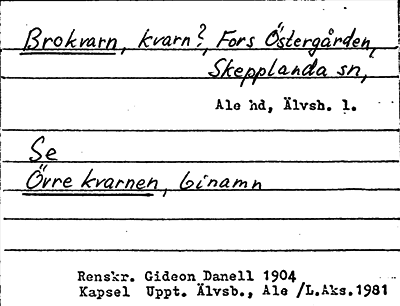 Brokvarn, kvarn?, Fors Östergården,
Skepplanda sn,
Ale hd, Älvsb. l.
Se
Övre kvarnen, binamn
Renskr. Gideon Danell 1904
Kapsel Uppt. Älvsb., Ale /L.Aks.1981